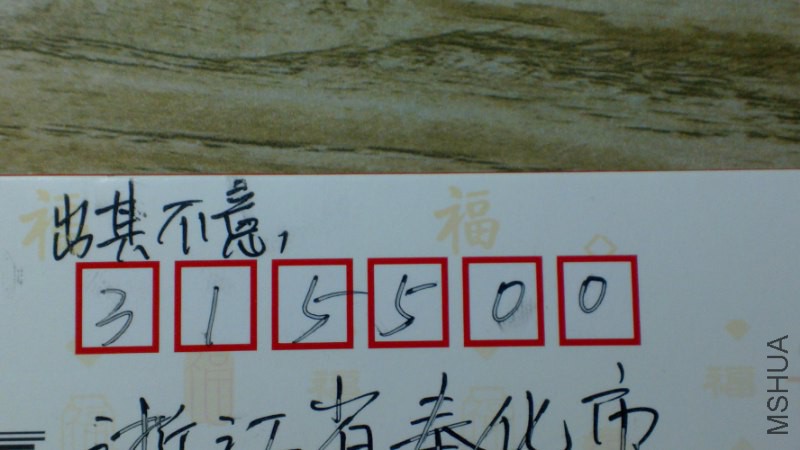 出其不意，
315500
浙江省奉化市
福
福
福
MSHUA